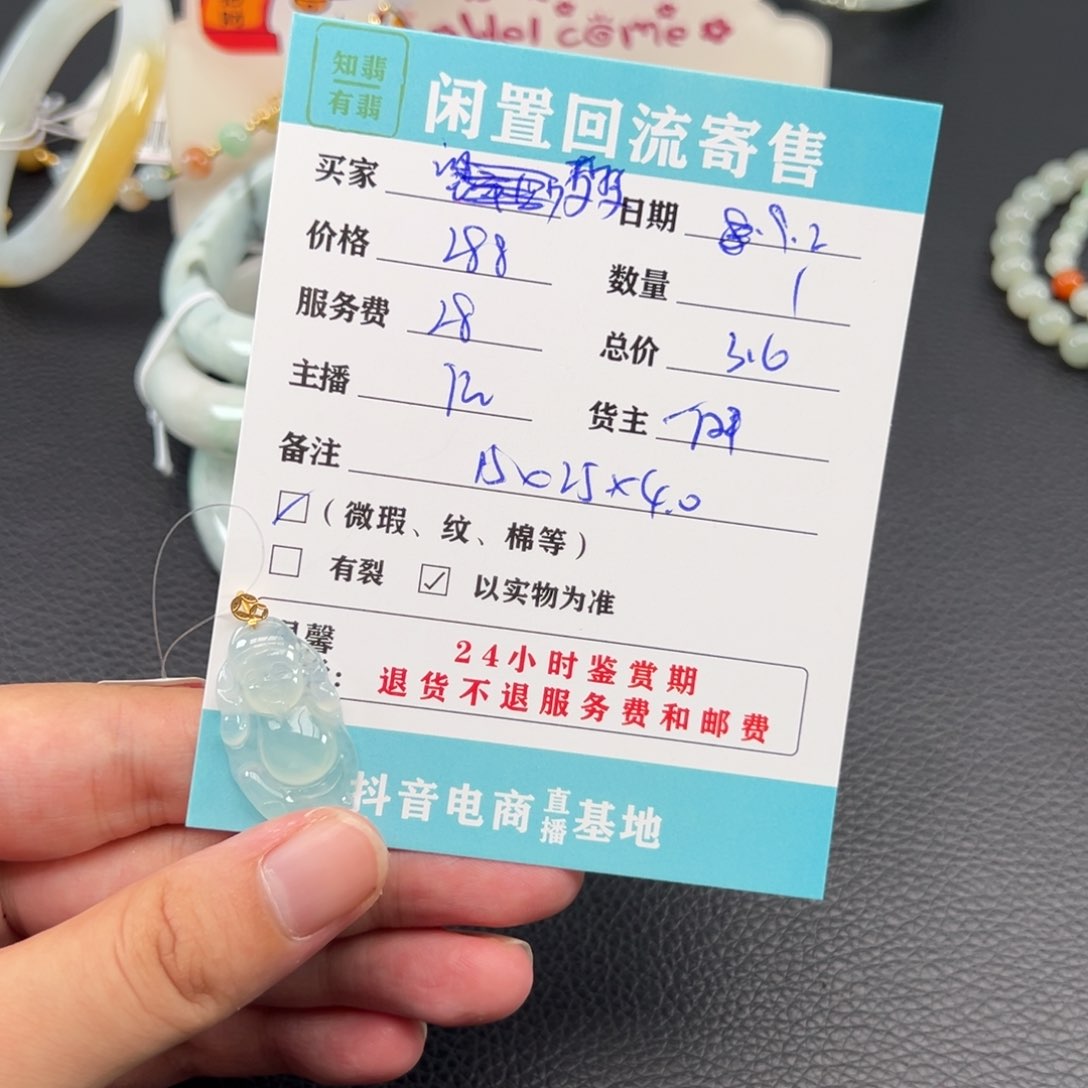 Welcome
知翡
有翡
闲置回流寄售
买家
日期 9.2
价格 288
数量 1
服务费 28
总价 316
主播
货主
备注 15×25×4.0
(微瑕、纹、棉等)
有裂 ☑ 以实物为准
馨
24小时鉴赏期
退货不退服务费和邮费
抖音电商直播基地